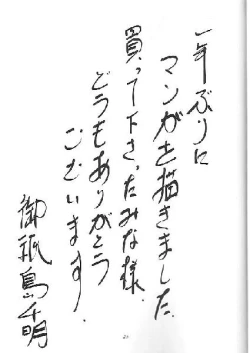 一年ぶりに
マンガを描きました。
買って下さったみな様、
どうもありがとう
ございます。
御祇島千明